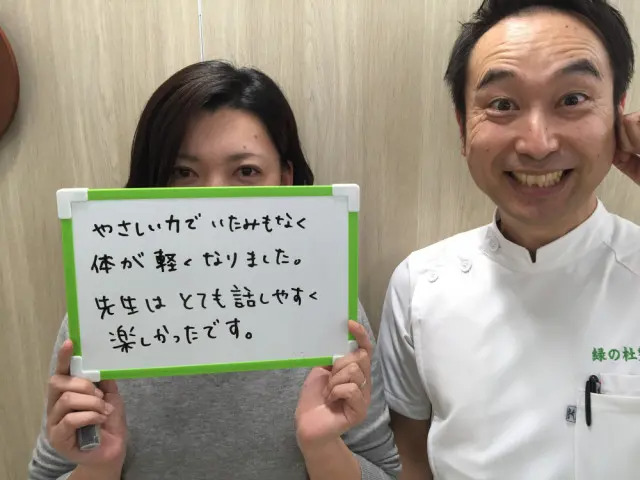 やさしい力で いたみもなく
体が 軽くなりました。
先生は とても話しやすく
楽しかったです。
緑の杜